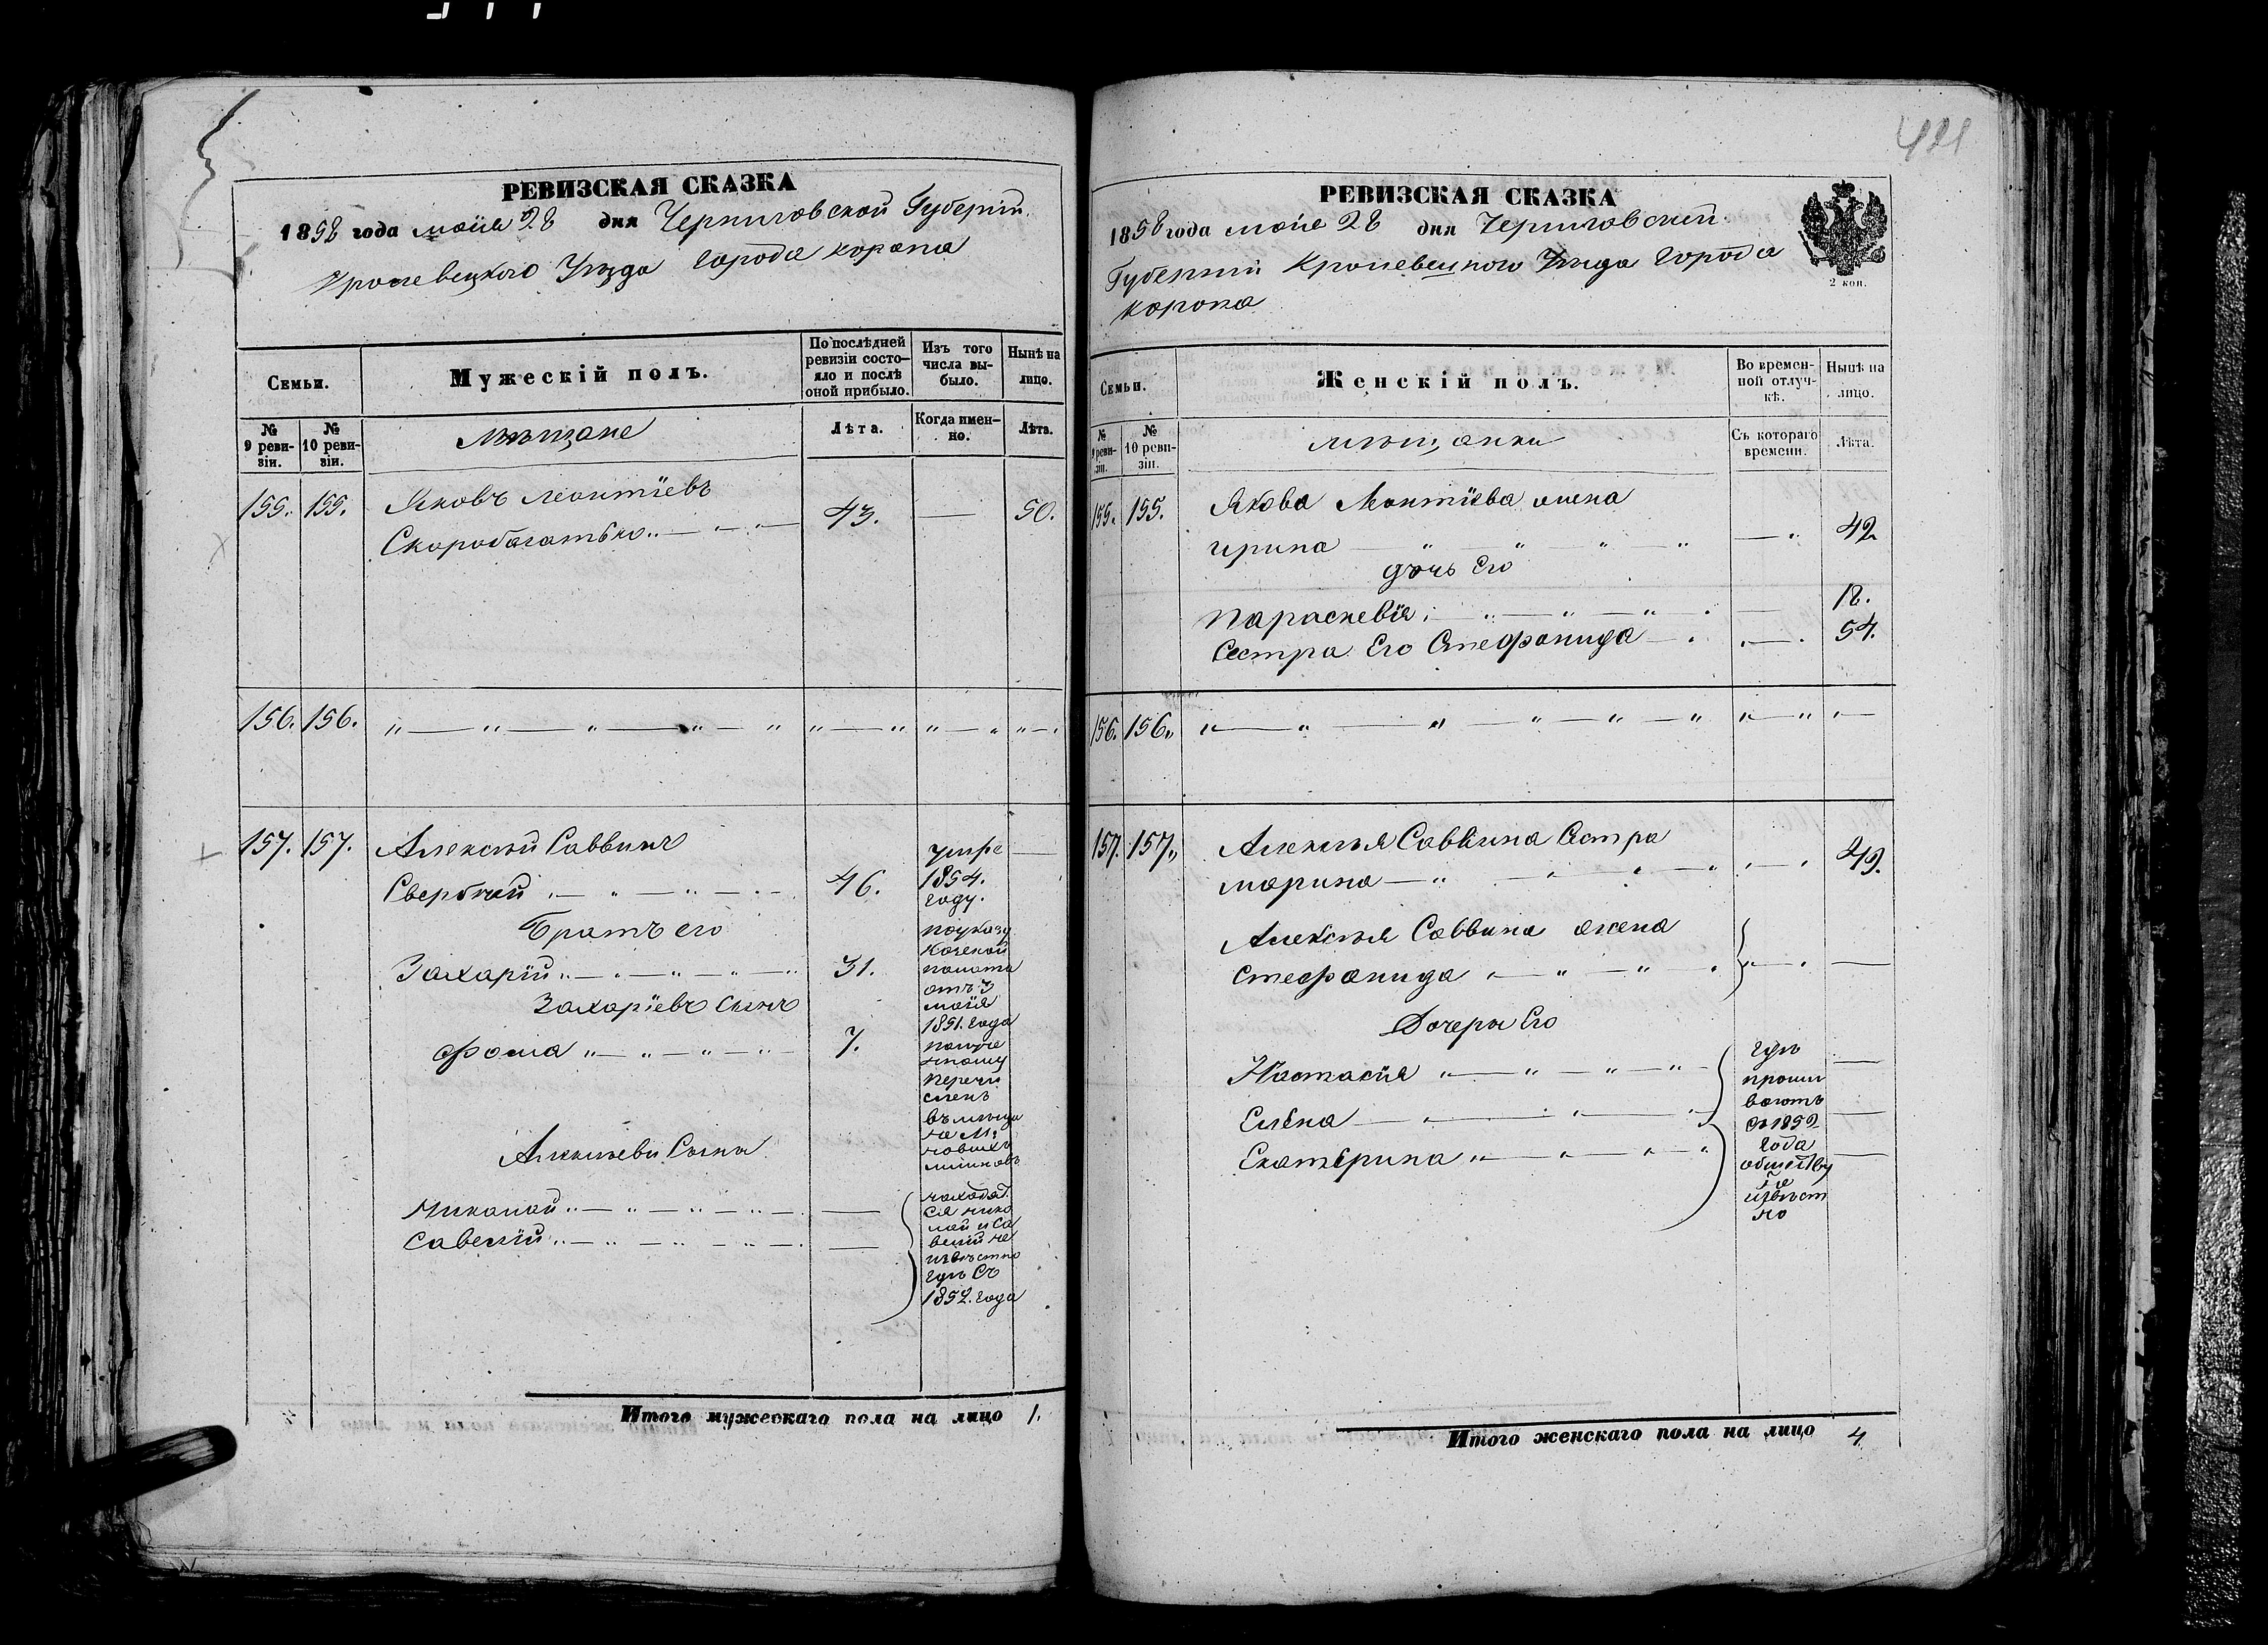 РЕВИЗСКАЯ СКАЗКА
1858 года мая 28 дня Черниговской Губерніи
Кролевецкого Уѣзда города Коропа
Семьи.
Мужескій полъ.
По послѣдней ревизіи состо-
яло и послѣ
оной прибыло.
Изъ того
числа вы-
было.
Нынѣ на
лицо.
№
9 реви-
зіи.
№
10 реви-
зіи.
Мѣщане
Лѣта.
Когда имен-
но.
Лѣта.
155. 155. Яковъ Леонтіевъ
Скоробагатько 43. — 50.
156. 156.
157. 157. Алексѣй Саввинъ
Свербѣй 46. умре 1854. году.
Братъ его
Захарій 31.
Захаріевъ Сынъ
Фома 7.
по указу
Казеной
палаты
отъ 3
мая
1851. года
перечи
сленъ
Алексѣевы Сыны
Николай
Савелій
находят
ся Нико
лай и Са
велій не
извѣстно
гдѣ Съ
1852. года
Итого мужескаго пола на лицо 1.
421
РЕВИЗСКАЯ СКАЗКА
1858 года мая 28 дня Черниговской
Губерніи Кролевецкого Уѣзда города
Коропа
2 коп.
Семьи.
Женскій полъ.
Во времен-
ной отлуч-
кѣ.
Нынѣ на
лицо.
№
9 реви-
зіи.
№
10 реви-
зіи.
мѣщанки
Съ котораго
времени.
Лѣта.
155. 155. Якова Леонтіева жена
Ирина — 42
дочь Его
Параскевія — 18.
Сестра Его Стефанида — 54.
156. 156.
157. 157. Алексѣя Саввина Сестра
Марина — 49.
Алексѣя Саввина жена
Стефанида
Дочери Его
Настасія
Елена
Екатерина
гдѣ
прожи
вають
съ 1852
года
обществу
не
извѣст
но
Итого женскаго пола на лицо 4